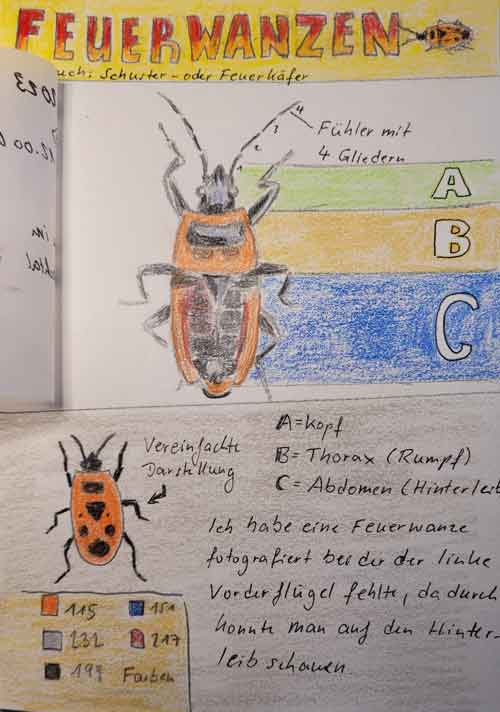 FEUERWANZEN
auch: Schuster- oder Feuerkäfer
2023
12.00
im
4
3
2
1
Fühler mit
4 Gliedern
A
B
C
Vereinfachte
Darstellung
A = Kopf
B = Thorax (Rumpf)
C = Abdomen (Hinterleib
Ich habe eine Feuerwanze
fotografiert bei der der linke
Vorderflügel fehlte, dadurch
konnte man auf den Hinter-
leib schauen.
115 151
232 217
199 Farben